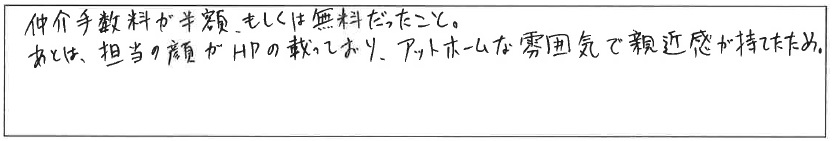 仲介手数料が半額、もしくは無料だったこと。
あとは、担当の顔がHPの載っており、アットホームな雰囲気で親近感が持てたため。